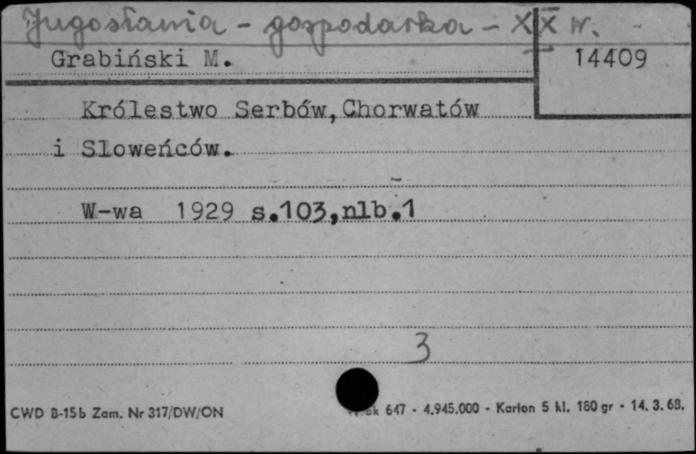 Jugosławia - gospodarka - XX w.
Grabiński M.
14409
Królestwo Serbów, Chorwatów
i Sloweńców.
W-wa 1929 s.103, nlb.1
3
CWD B-15b Zam. Nr 317/DW/ON
647 - 4.945.000 - Karton 5 kl. 180 gr - 14. 3. 68.